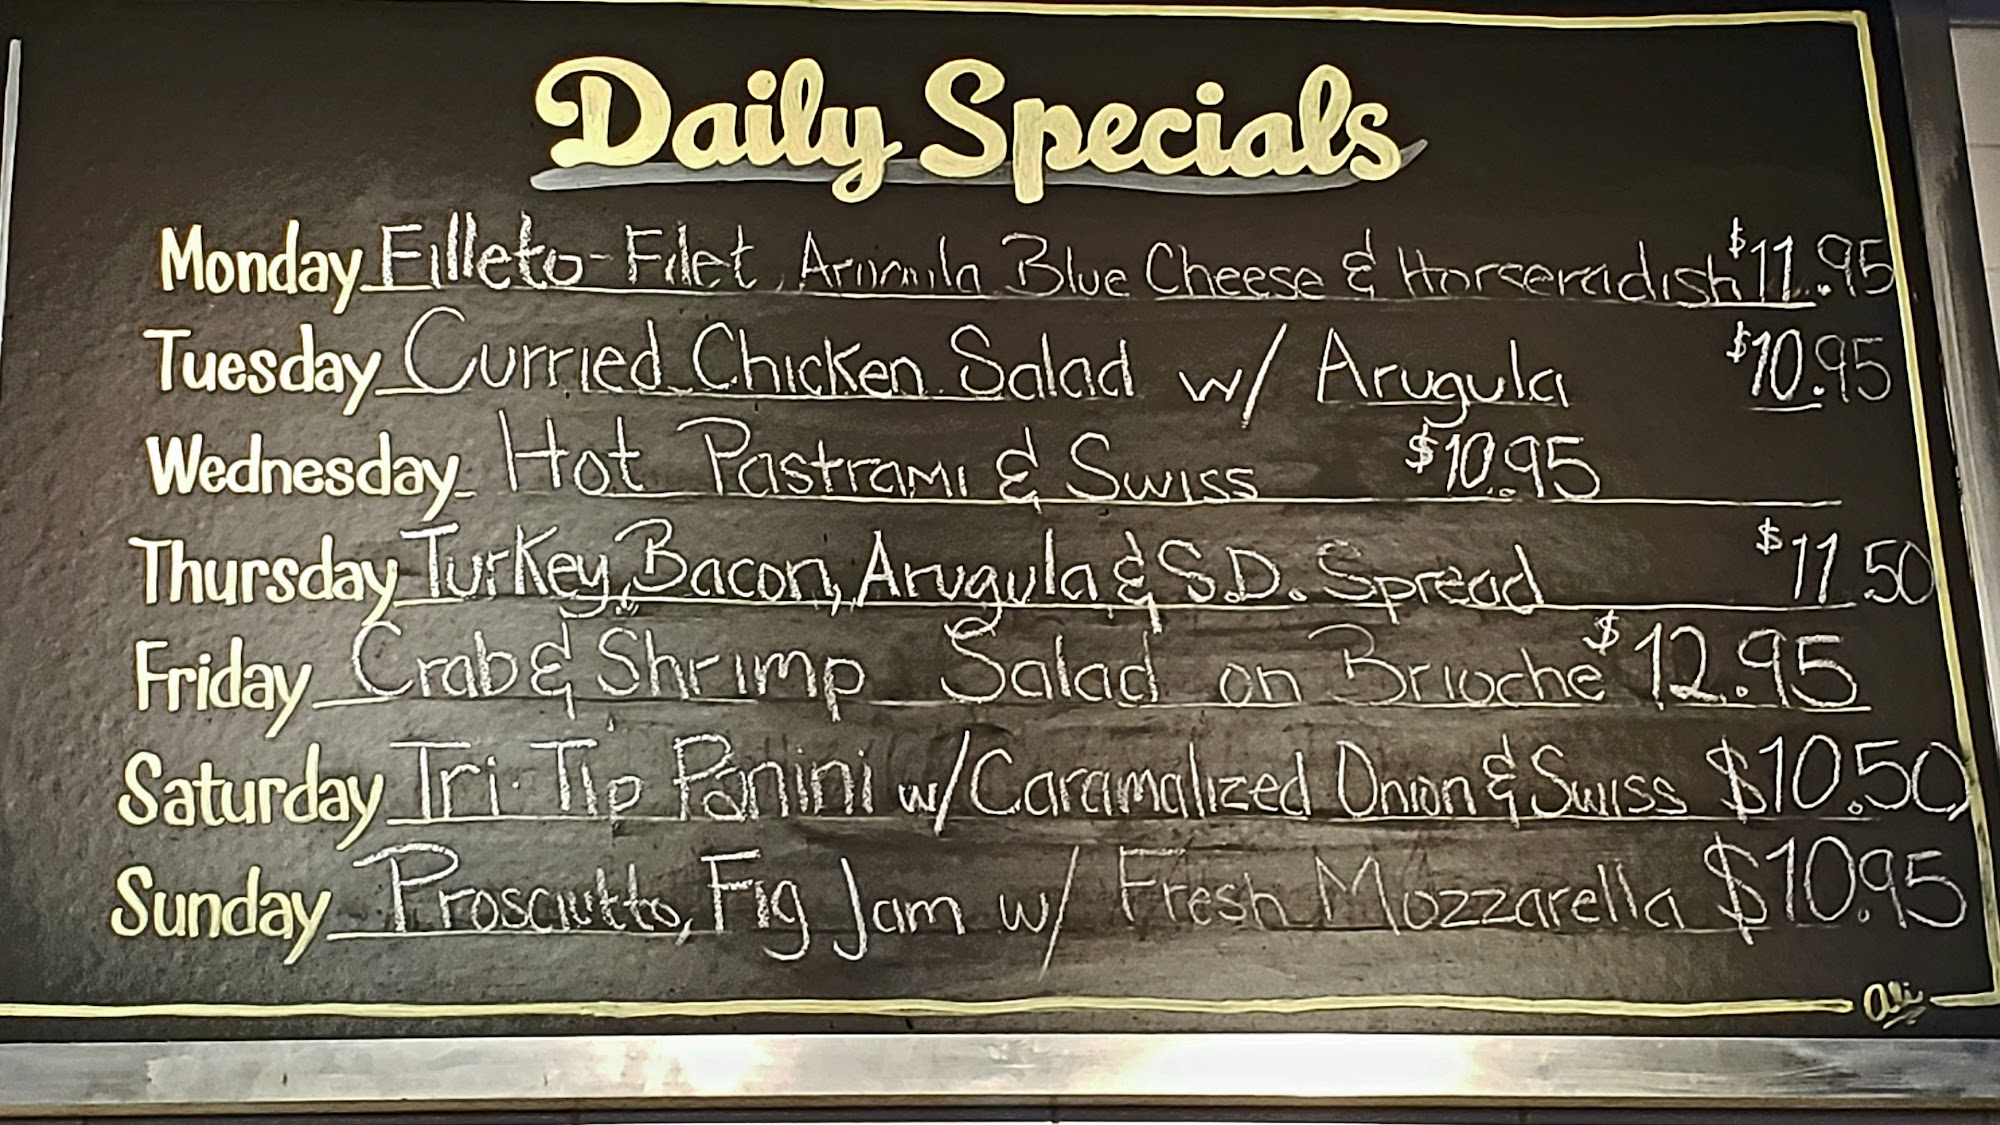 Daily Specials
Monday Filleto-Filet, Blue Cheese & Horseradish $11.95
Tuesday Curried Chicken Salad w/ Arugula $10.95
Wednesday Hot Pastrami & Swiss $10.95
Thursday Turkey, Bacon, Arugula & S.D. Spread $11.50
Friday Crab & Shrimp Salad on Brioche $12.95
Saturday Tri-Tip Panini w/ Caramalized Onion & Swiss $10.50
Sunday Prosciutto, Fig Jam w/ Fresh Mozzarella $10.95
Ali